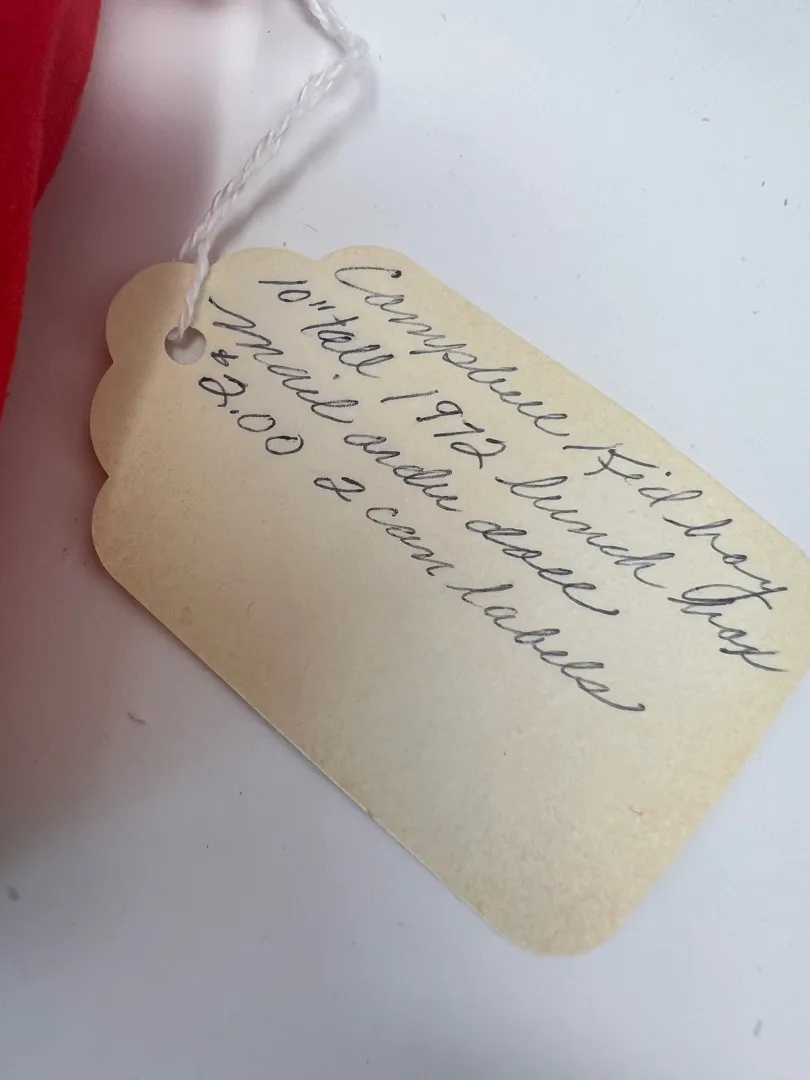 Campbell Kid boy
10" tall 1972 lunch box
Mail order doll
$2.00 2 can labels